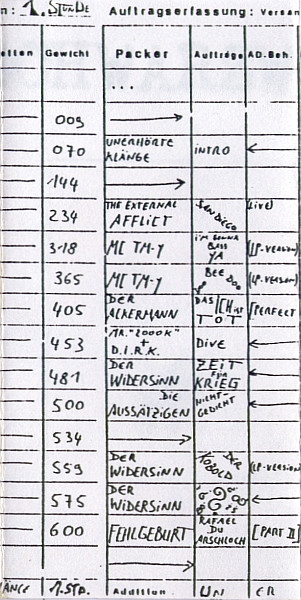 n: 1. STUNDE Auftragserfassung: Versan
etten Gewicht Packer Aufträge AD-Beh.
...
009
070 UNERHÖRTE KLÄNGE INTRO
144
234 THE EXTERNAL AFFLICT SAN DIEGO (LIVE)
318 MC TM-Y I'M GONNA BASS YA (LP-VERSION)
365 MC TM-Y BEE DOO (LP-VERSION)
405 DER ACKERMANN DAS ICH IST TOT [PERFECT
453 MR. "2000K" + D.I.R.K. DIVE
481 DER WIDERSINN ZEIT FÜR KRIEG
500 DIE AUSSÄTZIGEN NICHT-GEDICHT
534
559 DER WIDERSINN DER KOBOLD (LP-VERSION
575 DER WIDERSINN
600 FEHLGEBURT RAFAEL DU ARSCHLOCH [PART II]
ÄNCE 1.STD. Addition UN ER